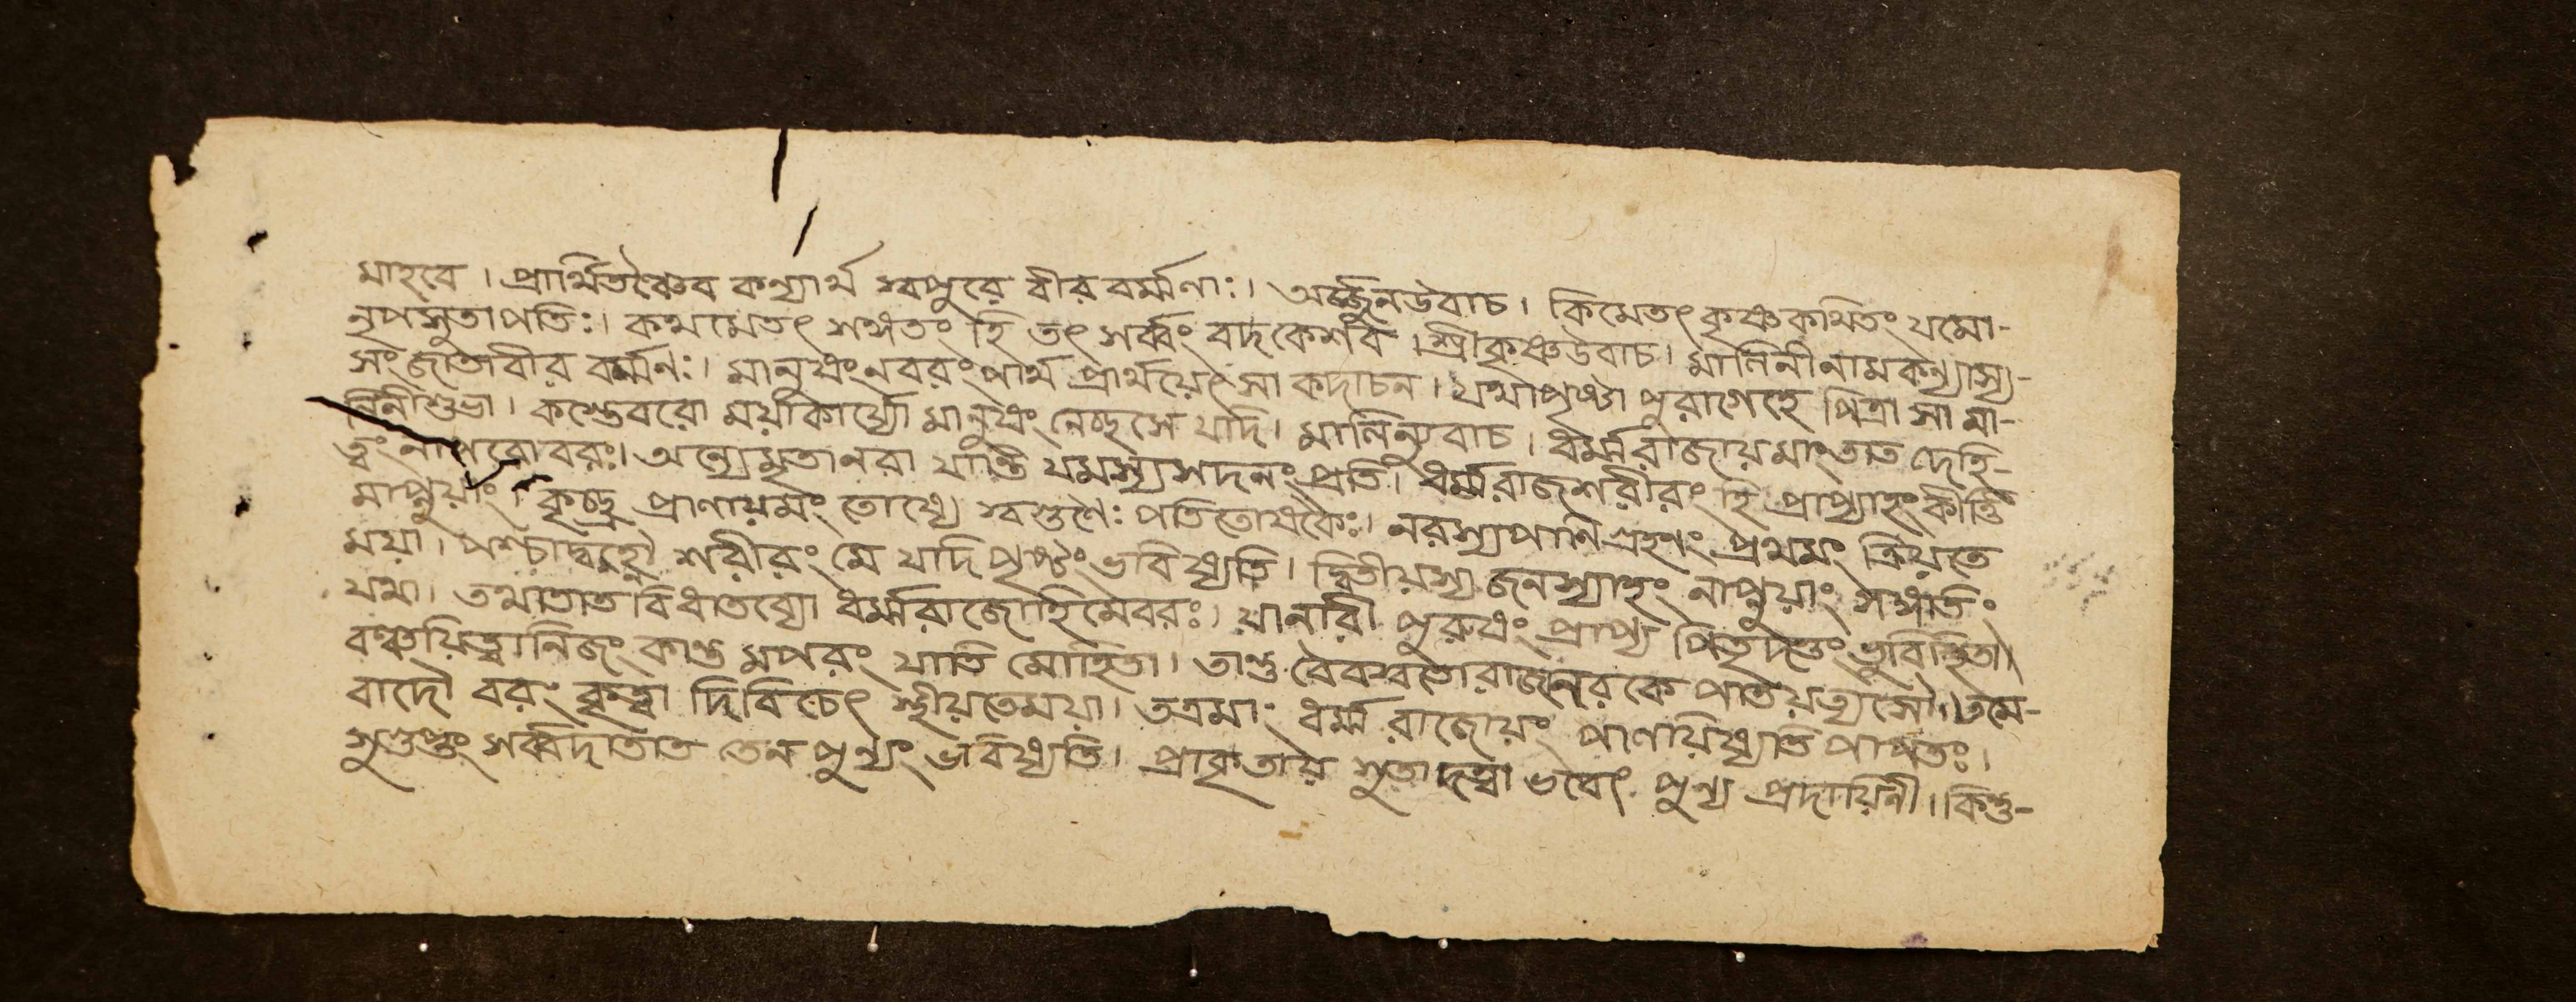 মাহবে। প্রার্থিতশ্চৈব কন্যার্থ শ্বশুরে বীর বর্ম্মণাঃ। অর্জ্জুনউবাচ। কিমেতৎ কৃষ্ণকথিতং যমো-
নৃপসুতাপতিঃ। কথমেতৎ শঙ্গতং হি তৎ সর্ব্বং বদকেশব। শ্রীকৃষ্ণউবাচ। মালিনীনামকন্যাস্য-
সংজাতাবীর বর্ম্মণঃ। মানুষংনবরংপার্থ প্রার্থয়েৎ সা কদাচন। যথাপৃষ্টা পুরাগেহে পিত্রা সা মা-
লিনীশুভা। কস্তেবরো ময়াকার্য্যো মানুষং নেচ্ছসে যদি। মালিন্যুবাচ। ধর্ম্মরাজায়মাংতাত দেহি-
ত্বং নাপরোবরঃ। অন্যেমৃতানরা যান্তি যমস্যসদনং প্রতি। ধর্ম্মরাজশরীরং হি প্রাপ্যাহং কীর্ত্তি
মাপ্নুয়াং। কৃচ্ছ্র প্রাণায়মং তোষ্যে শ্বগুণৈঃ পতিতোষকৈঃ। নরস্যপানিগ্রহণং প্রথমং ক্রিয়তে
ময়া। পশ্চাদ্বহ্নৌ শরীরং মে যদি পৃষ্টং ভবিষ্যতি। দ্বিতীয়স্য জনস্যাহং নাপ্নুয়াং সঙ্গতিং
যথা। তথাতাত বিধাতব্যো ধর্ম্মরাজোহিমেবরঃ। যানারী পুরুষং প্রাপ্য পিতৃদত্তং ভুবিস্থিতা।
বঞ্চয়িত্বানিজং কান্ত মপরং যাতি মোহিতা। তান্তু বৈবশ্বতোরাজানরকে পাতয়ত্যসৌ। তমে-
বাদৌ বরং কৃত্বা দিবিচেৎ স্থীয়তেময়া। তত্রমাং ধর্ম্ম রাজোয়ং পাণয়িষ্যতি পাপতঃ।
গুপ্তপ্তং সর্ব্বদাতাত তেন পুণ্যং ভবিষ্যতি। প্রাকৃতায় সুতাদত্বা ভবেৎ পুণ্য প্রদায়িনী। কিন্তু-